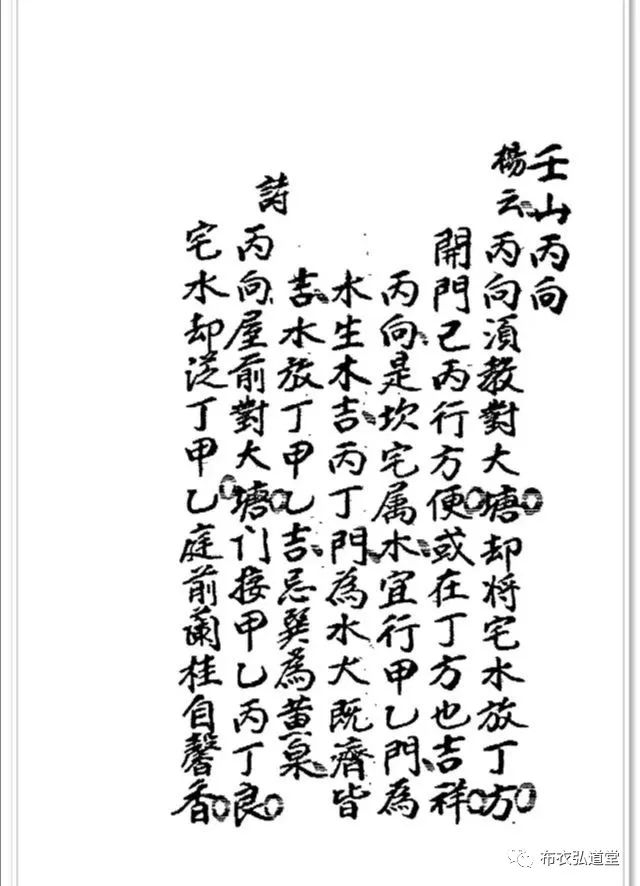 壬山丙向
楊云丙向須教對大塘却将宅水放丁方
開門己丙行方便或在丁方也吉祥
丙向是坎宅属水宜行甲乙門為
水生木吉丙丁門為水火既濟皆
吉水放丁甲乙吉忌巽為黄泉
詩
丙向屋前對大塘门接甲乙丙丁良
宅水却従丁甲乙庭前蘭桂自馨香
布衣弘道堂